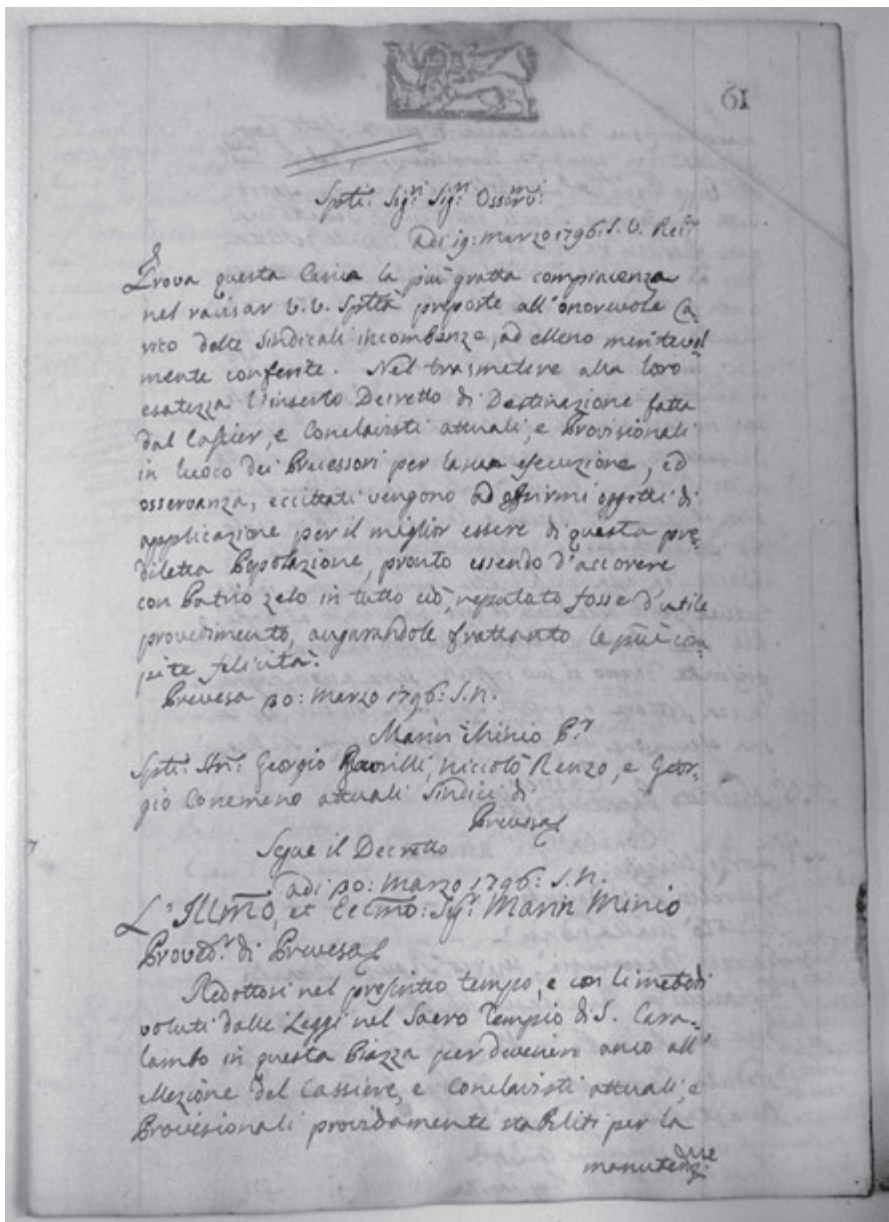 61
Sptti: Sigri: Sigri: Ossermi:
adi 19: marzo 1796: S. V. Recta
Trova questa Carica la più gratta compiacenza
nel ravisar V. V. Sptta preposte all'onorevole Ca-
rico delle Sindicali incombenze, ad elleno meritevol
mente conferite. Nel trasmetere alla loro
esatezza l'inserto Decretto di Destinazione fatta
dal Cassier, e Conclavisti attuali, e Provisionali
in luoco dei Precessori per la sua esecuzione, ed
osservanza, eccittati vengono ad offrirmi oggetti di
applicazione per il miglior essere di questa pre-
diletta Popolazione, pronto essendo d'accorere
con Patrio zelo in tutto ciò, reputato fosse d'utile
provedimento, augurandole frattanto le più com-
pite felicità.
Prevesa 30: Marzo 1796: S. N.
Marin Minio Pr
Sptti: SSri: Georgio Niccolò Renzo, e Geor-
gio Conemeno attuali Sindici di
Prevesa
Segue il Decretto
adi 30: Marzo 1796: S. N.
L'Illmo, et Eccmo: Sigr: Marin Minio
Provedr di Prevesa
Redottosi nel prefinito tempo, e con li metodi
voluti dalle Leggi nel Sacro Tempio di S. Cara-
lambo in questa Piazza per devenire anco all'
ellezione del Cassiere, e Conclavisti attuali, e
Provisionali providamente stabiliti per la
manutenzione